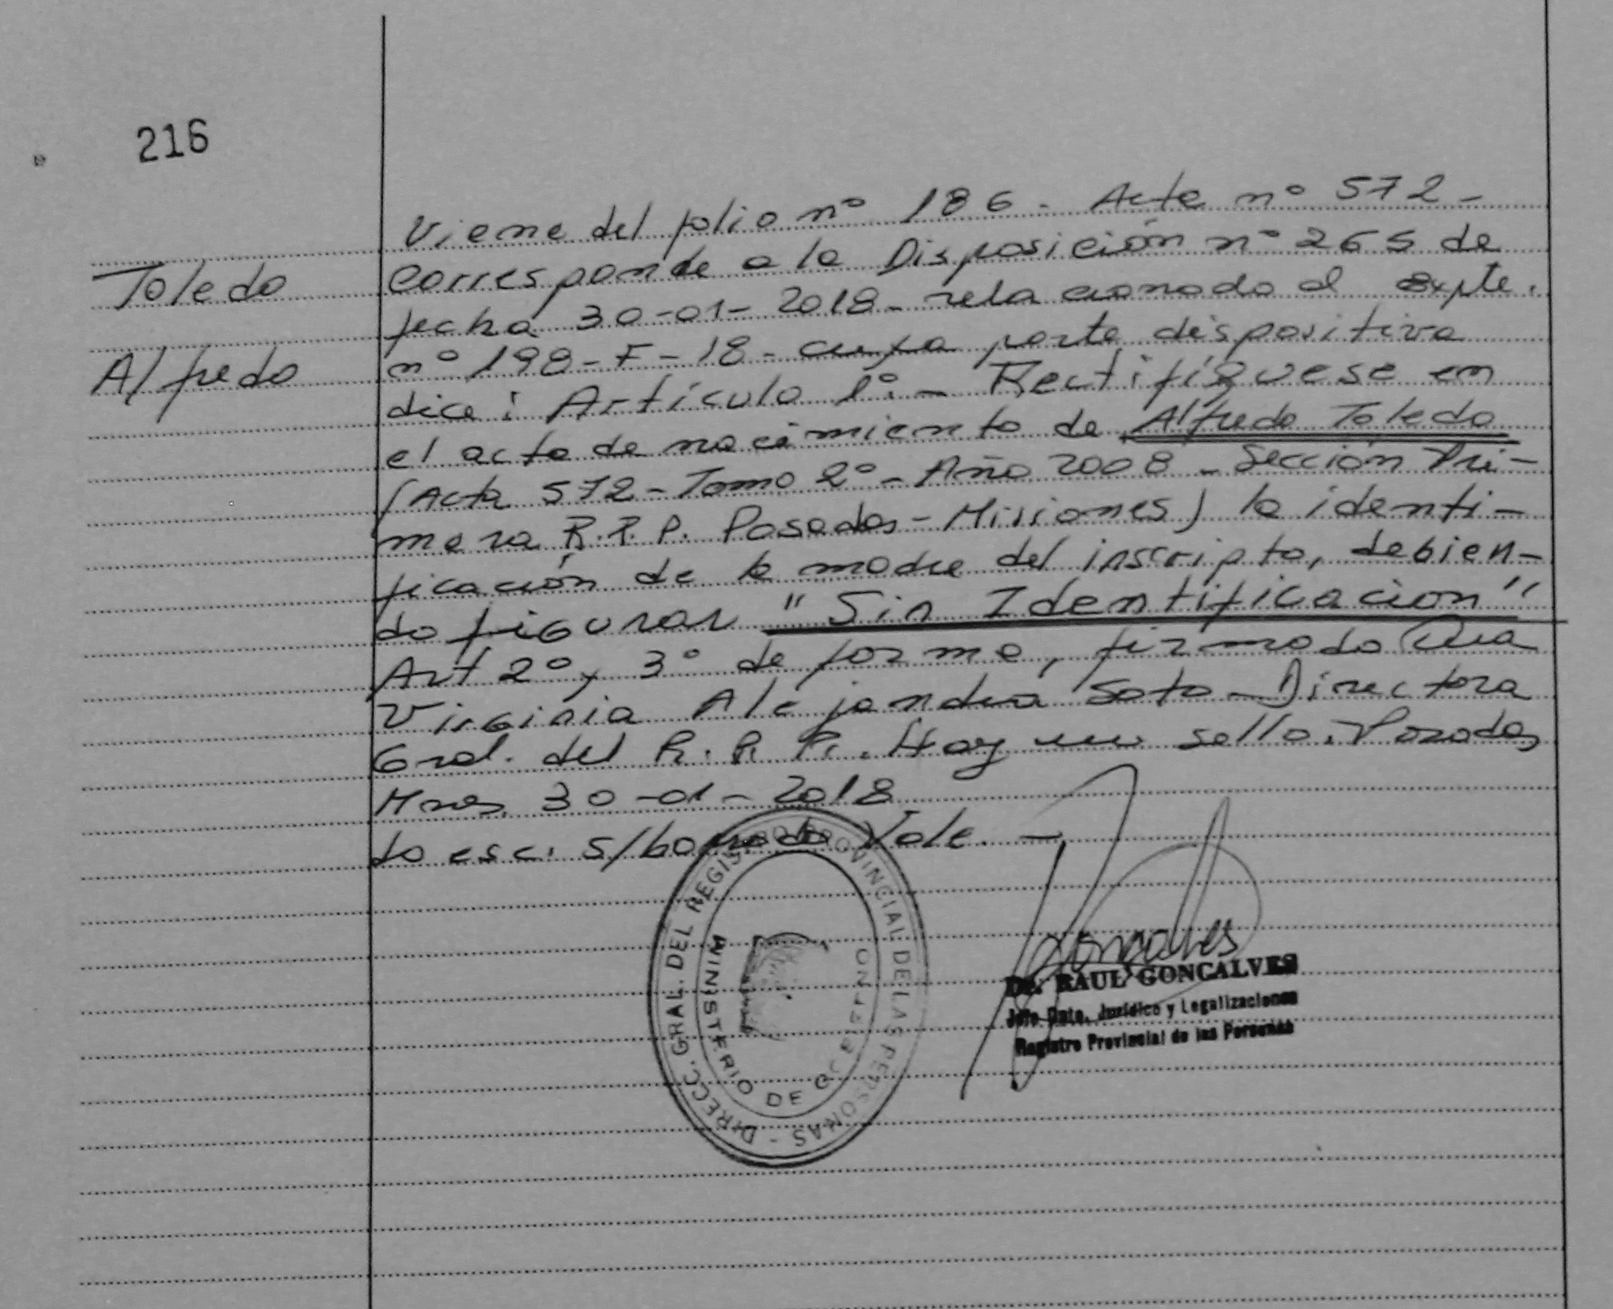 216
Toledo
Alfredo
Viene del folio nº 186 - Acta nº 572 -
Corresponde a la Disposición nº 265 de
fecha 30-01-2018 - relacionado al Expte.
nº 198-F-18 - cuya parte dispositiva
dice: Artículo 1º. - Rectifíquese en
el acta de nacimiento de Alfredo Toledo
(Acta 572 - Tomo 2º - Año 2008 - Sección Pri-
mera R.P.P. Posadas - Misiones) la identi-
ficación de la madre del inscripto, debien-
do figurar "Sin Identificacion"
Art 2º y 3º de forma, firmado Dra
Virginia Alejandra Soto - Directora
Gral. del R.P.P. Hay un sello. Posadas
Mnes 30-01-2018
do esc. s/borrado Vale. -
DIRECC. GRAL. DEL REGISTRO PROVINCIAL DE LAS PERSONAS -
MINISTERIO DE GOBIERNO
Goncalves
Dr. RAUL GONCALVES
Jefe Dpto. Jurídico y Legalizaciones
Registro Provincial de las Personas